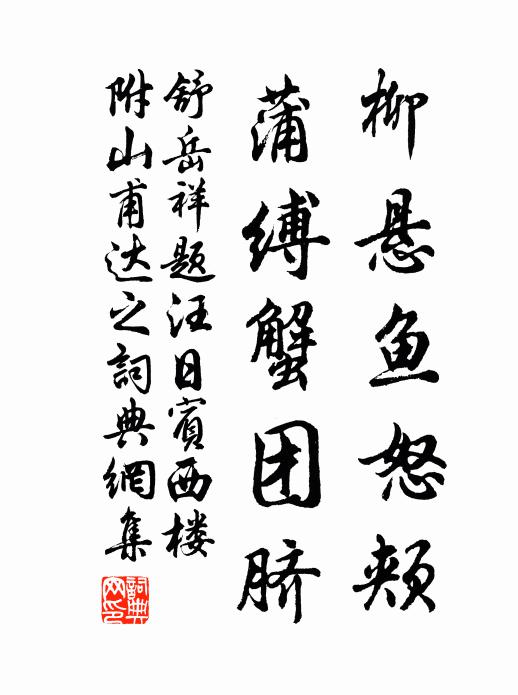 柳悬鱼怒颊
蒲缚蟹团脐
舒岳祥题汪日賓西楼
附山甫达之詞典網集
詞典网印